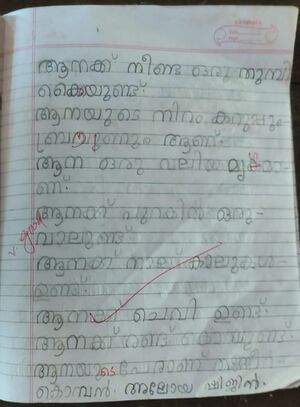 ആനക്ക് നീണ്ട ഒരു തുമ്പി
കൈയുണ്ട്.
ആനയുടെ നിറം കറുപ്പും-
ബ്രൗണും ആണ്.
ആന ഒരു വലിയ മൃഗമാ-
ണ്.
ആനക്ക് പുറകിൽ ഒരു-
വാലുണ്ട്
v. good
ആനക്ക് നാല് കാലുകൾ-
ഉണ്ട്.
ആനക്ക് ചെവി ഉണ്ട്.
ആനക്ക് രണ്ട് കൊമ്പുണ്ട്
ആനയുടെ പേരാണ്
കൊമ്പൻ. അലോയ ഷിജിൻ.